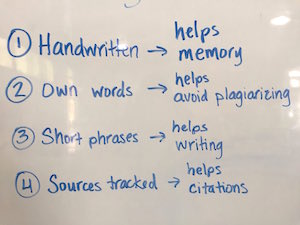 ① Handwritten → helps
memory
② Own words → helps
avoid plagiarizing
③ Short phrases → helps
writing
④ Sources tracked → helps
citations